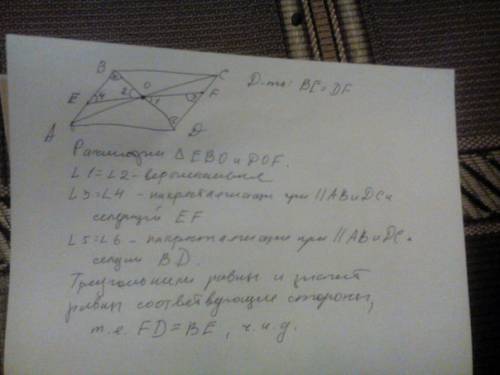 B
C
Д-ть: BE=DF
O
E 4
2
1
3
F
A
D
Рассмотрим Δ EBO и DOF.
∠1=∠2 - вертикальные
∠3=∠4 - накрест лежащие при || AB и DC и
секущей EF
∠5=∠6 - накрест лежащие при || AB и DC и
секущей BD.
Треугольники равны и значит
равны соответствующие стороны,
т.е. FD=BE, ч.и.д.